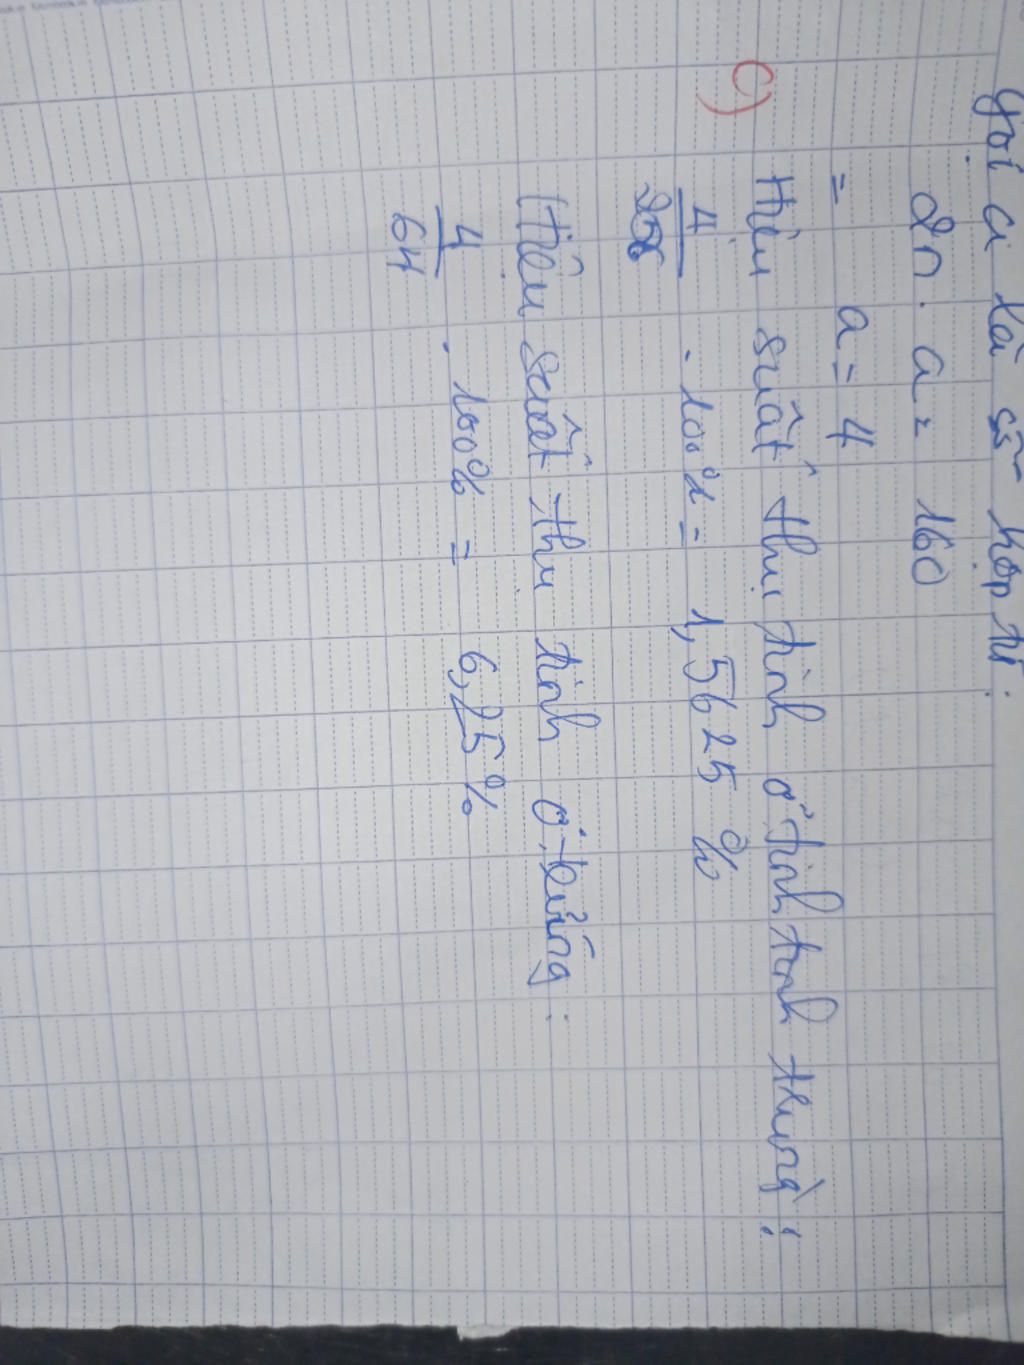 gọi a là số hợp tử:
2n. a = 160
= a = 4
c) Hiệu suất thụ tinh ở tinh trùng:
4/256 . 100% = 1,5625 %
Hiệu suất thụ tinh ở trứng:
4/64 . 100% = 6,25%